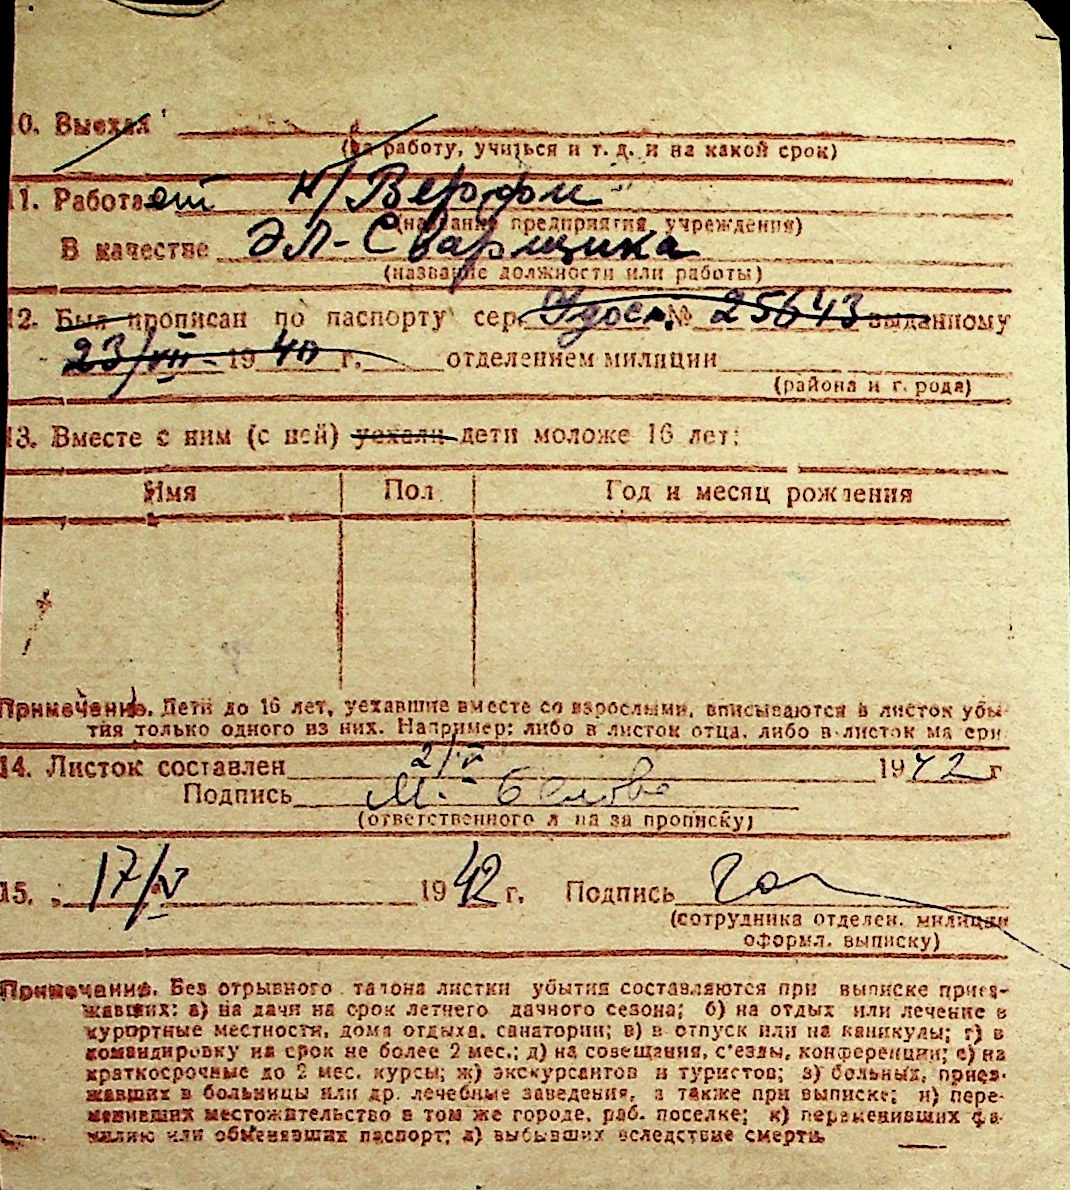 10. Выехал
(на работу, учиться и т. д. и на какой срок)
11. Работает н/Верфи
(название предприятия учреждения)
В качестве Эл-Сварщика
(название должности или работы)
12. Был прописан по паспорту сер. Удост. № 25643 выданному
23/VII - 1940 г. отделением милиции
(района и города)
13. Вместе с ним (с ней) уехали дети моложе 16 лет:
Имя Пол Год и месяц рождения
Примечание. Дети до 16 лет, уехавшие вместе со взрослыми, вписываются в листок убы-
тия только одного из них. Например: либо в листок отца, либо в листок матери
14. Листок составлен 2/V 1942 г
Подпись М. Белова
(ответственного лица за прописку)
15. 17/V 1942 г. Подпись
(сотрудника отделен. милиции
оформл. выписку)
Примечание. Без отрывного талона листки убытия составляются при выписке приез-
жавших: а) на дачи на срок летнего дачного сезона; б) на отдых или лечение в
курортные местности, дома отдыха, санатории; в) в отпуск или на каникулы; г) в
командировку на срок не более 2 мес.; д) на совещания, с'езды, конференции; е) на
краткосрочные до 2 мес. курсы; ж) экскурсантов и туристов; з) больных, приез-
жавших в больницы или др. лечебные заведения, а также при выписке; и) пере-
менивших местожительство в том же городе, раб. поселке; к) переменивших фа-
милию или обменявших паспорт; л) выбывших вследствие смерти.